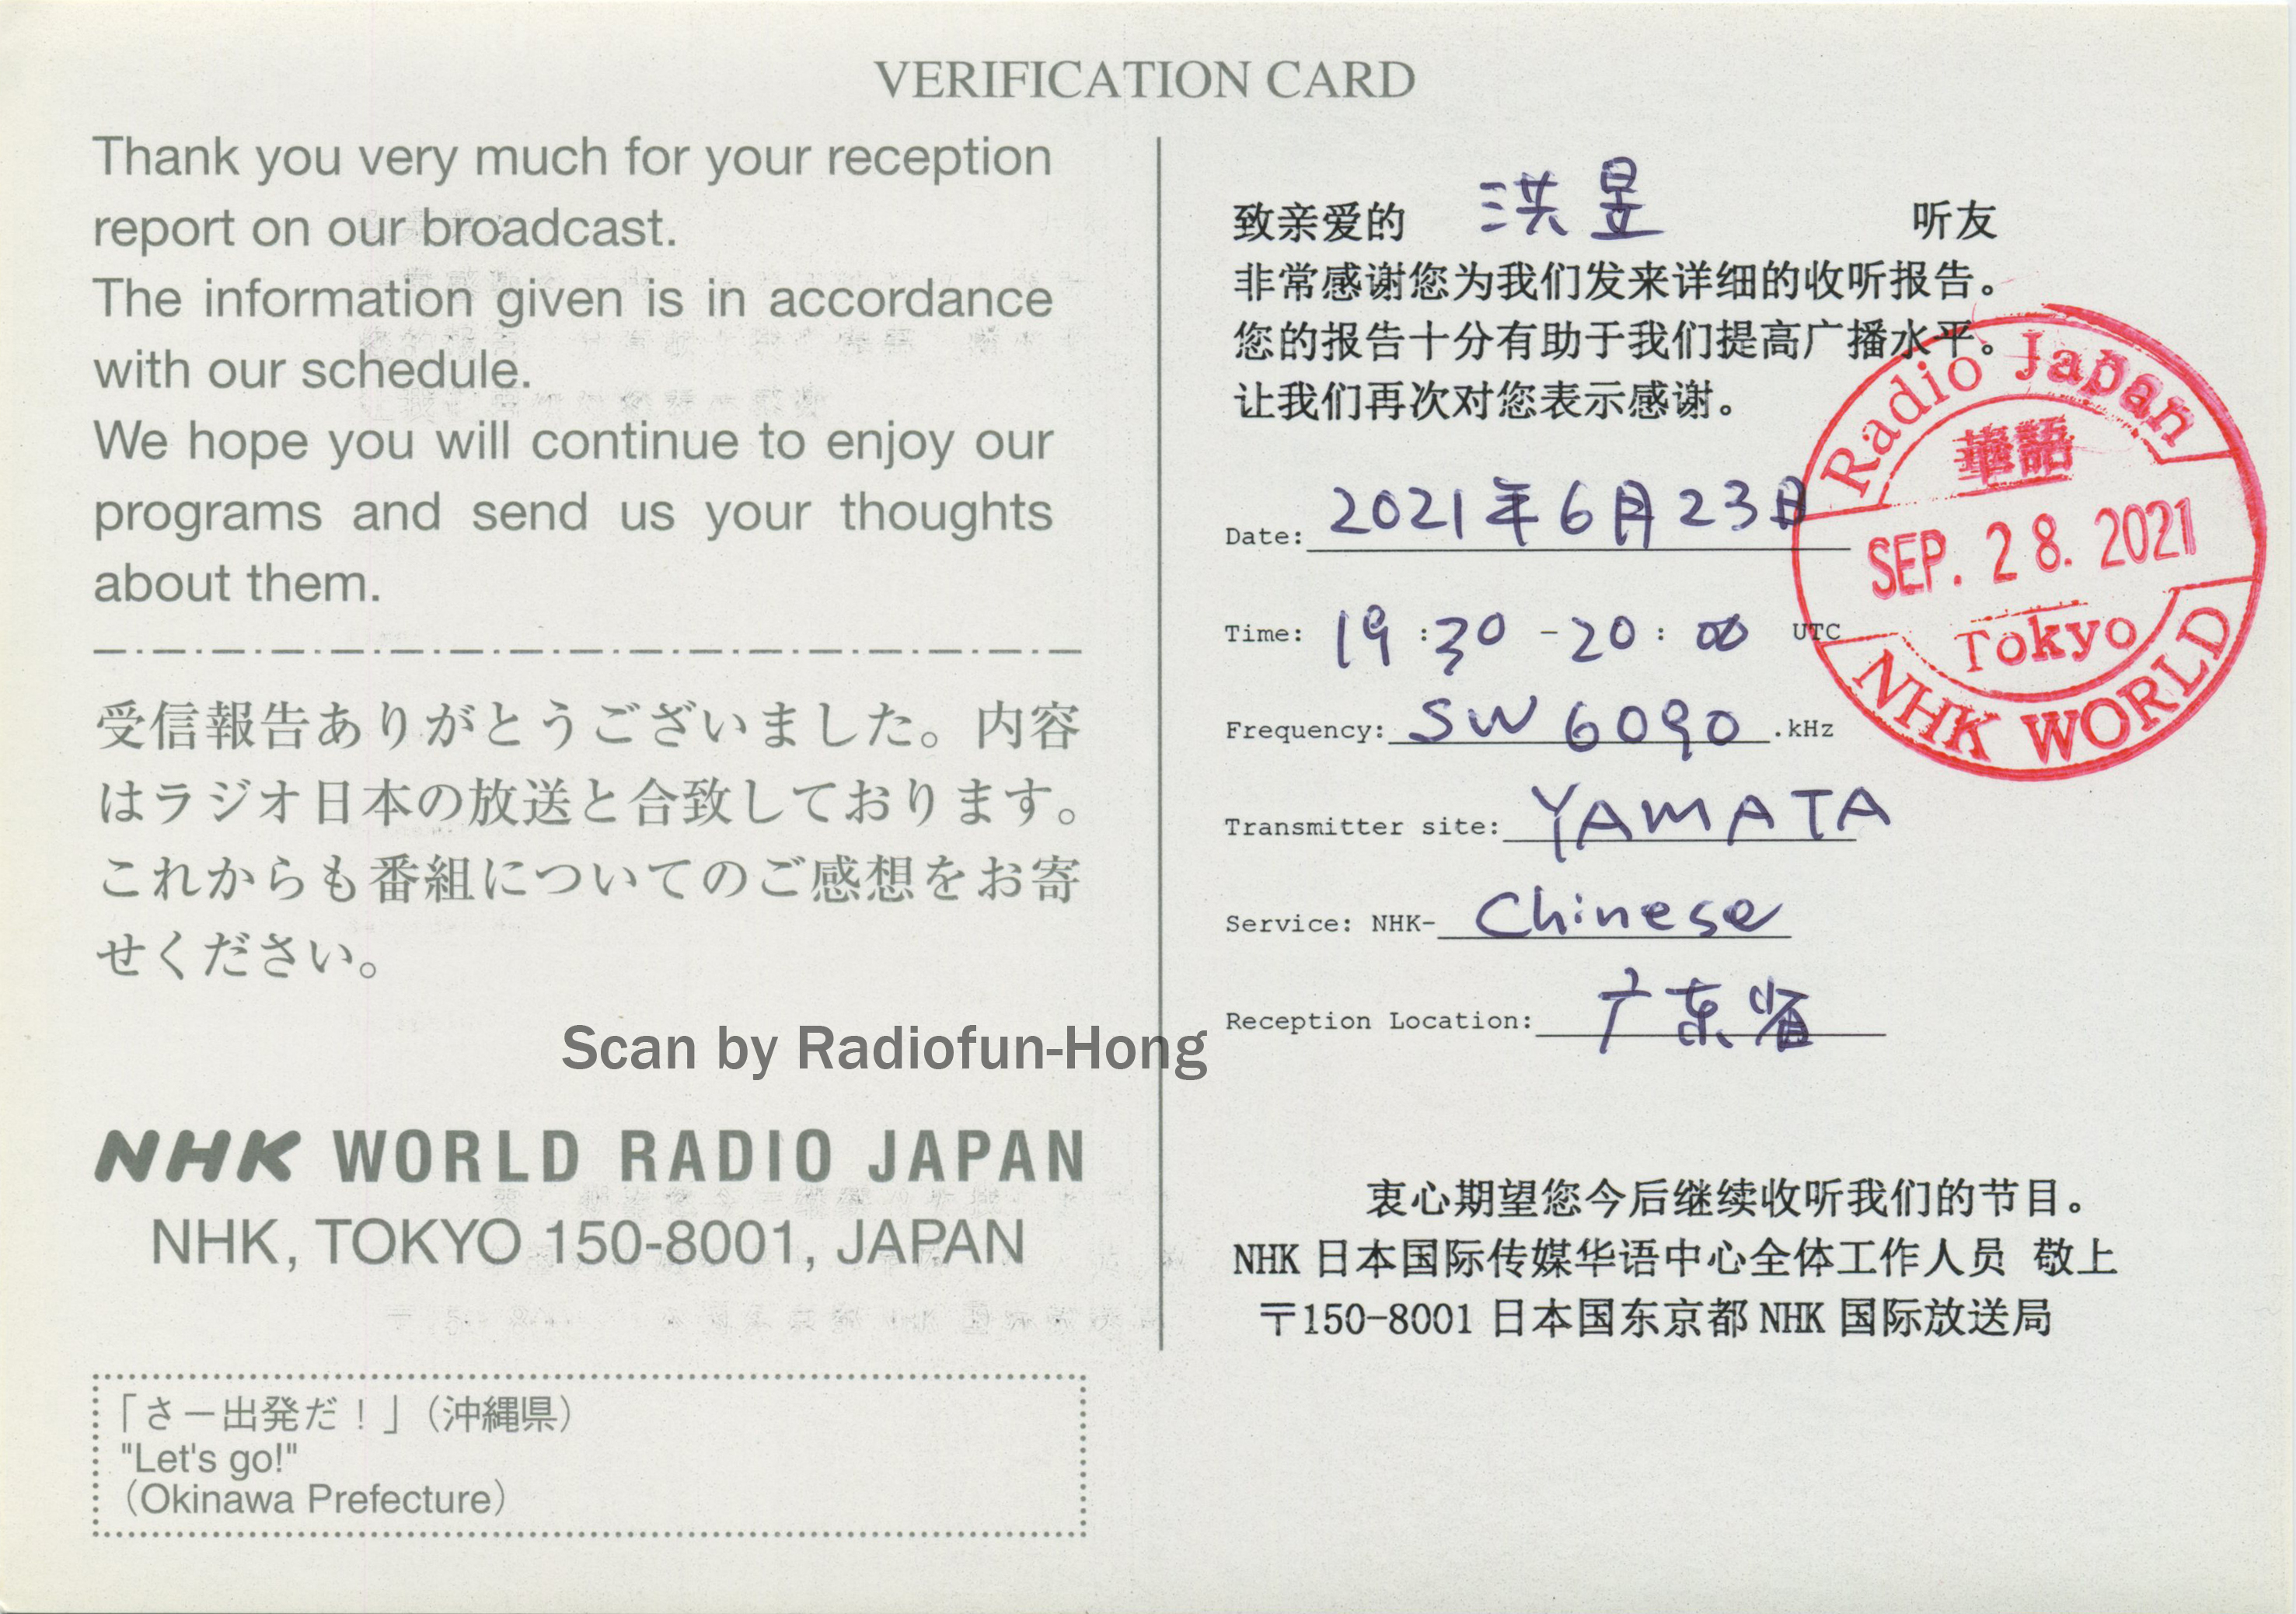 VERIFICATION CARD
Thank you very much for your reception
report on our broadcast.
The information given is in accordance
with our schedule.
We hope you will continue to enjoy our
programs and send us your thoughts
about them.
受信報告ありがとうございました。内容
はラジオ日本の放送と合致しております。
これからも番組についてのご感想をお寄
せください。
Scan by Radiofun-Hong
NHK WORLD RADIO JAPAN
NHK, TOKYO 150-8001, JAPAN
「さー出発だ！」（沖縄県）
"Let's go!"
（Okinawa Prefecture）
致亲爱的 洪昱 听友
非常感谢您为我们发来详细的收听报告。
您的报告十分有助于我们提高广播水平。
让我们再次对您表示感谢。
Date: 2021年6月23日
Time: 19:30-20:00 UTC
Frequency: SW 6090 .kHz
Transmitter site: YAMATA
Service: NHK- Chinese
Reception Location: 广东省
Radio Japan
華語
SEP. 28. 2021
Tokyo
NHK WORLD
衷心期望您今后继续收听我们的节目。
NHK 日本国际传媒华语中心全体工作人员 敬上
〒150-8001 日本国东京都 NHK 国际放送局